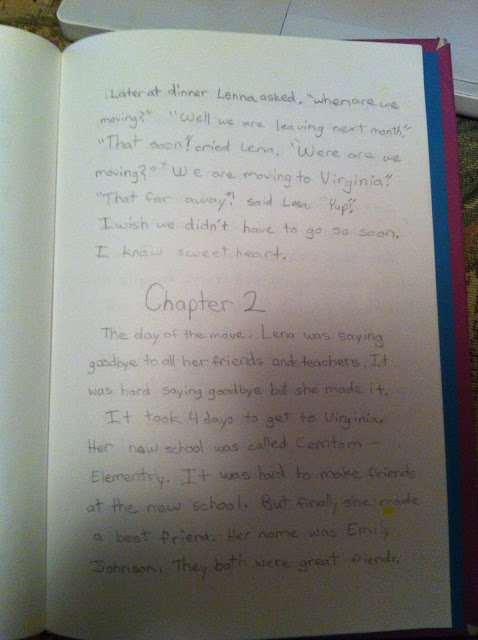 Later at dinner Lenna asked, "when are we
moving?" "Well we are leaving next month."
"That soon"! cried Lena. "Were are we
moving?" "We are moving to Virginia."
"That far away"! said Lena "Yup".
I wish we didn't have to go so soon.
I know sweet heart.
Chapter 2
The day of the move. Lena was saying
goodbye to all her friends and teachers. It
was hard saying goodbye but she made it.
It took 4 days to get to Virginia.
Her new school was called
Elementry. It was hard to make friends
at the new school. But finally she made
a best friend. Her name was Emily
Johnson. They both were great friends.